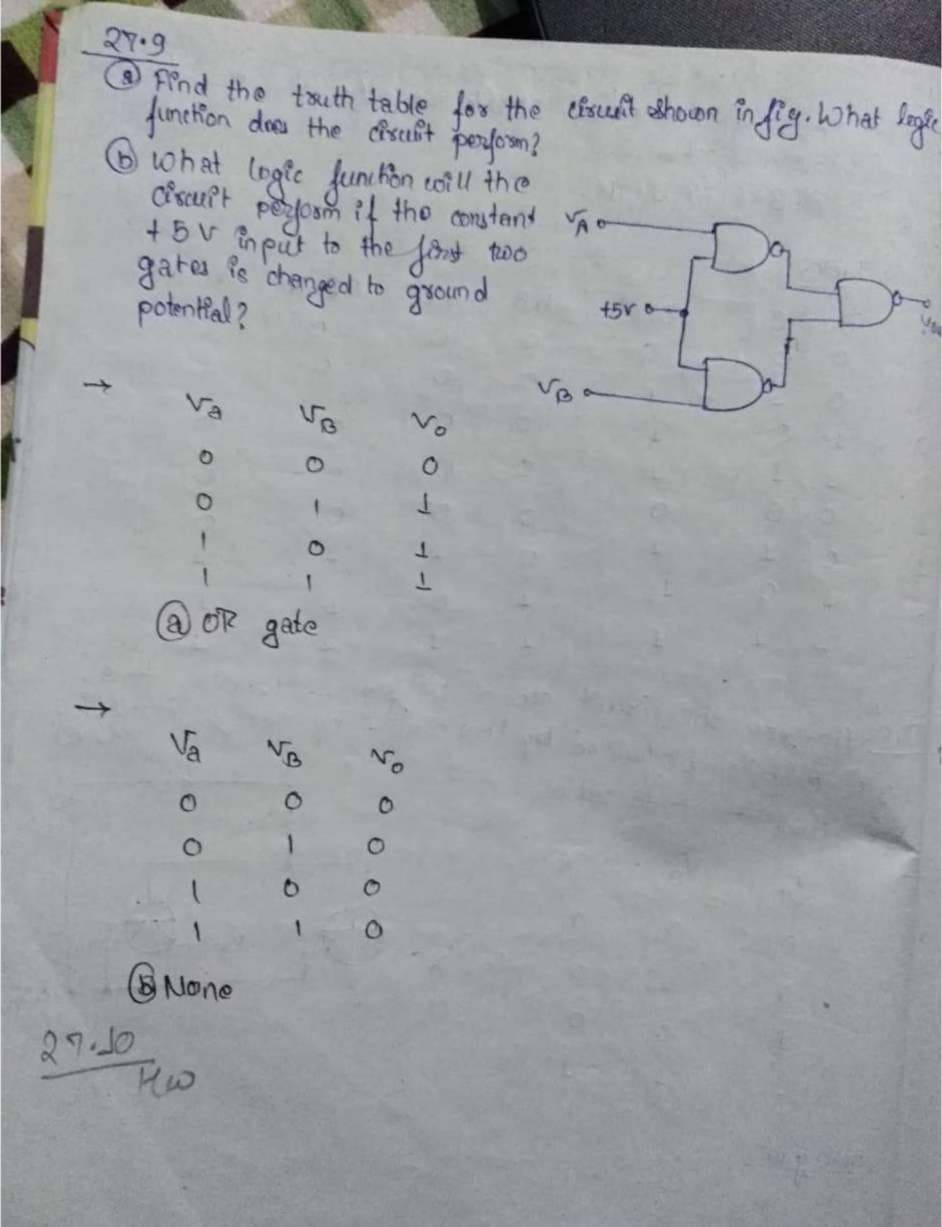 27.9
ⓐ Find the truth table for the circuit shown in fig. What logic
function does the circuit perform?
ⓑ What logic function will the
circuit perform if the constant
+5V input to the first two
gates is changed to ground
potential?
VA
+5V
VB
→
Va VB Vo
0 0 0
0 1 1
1 0 1
1 1 1
ⓐ OR gate
→
Va VB Vo
0 0 0
0 1 0
1 0 0
1 1 0
ⓑ None
27.10
HW